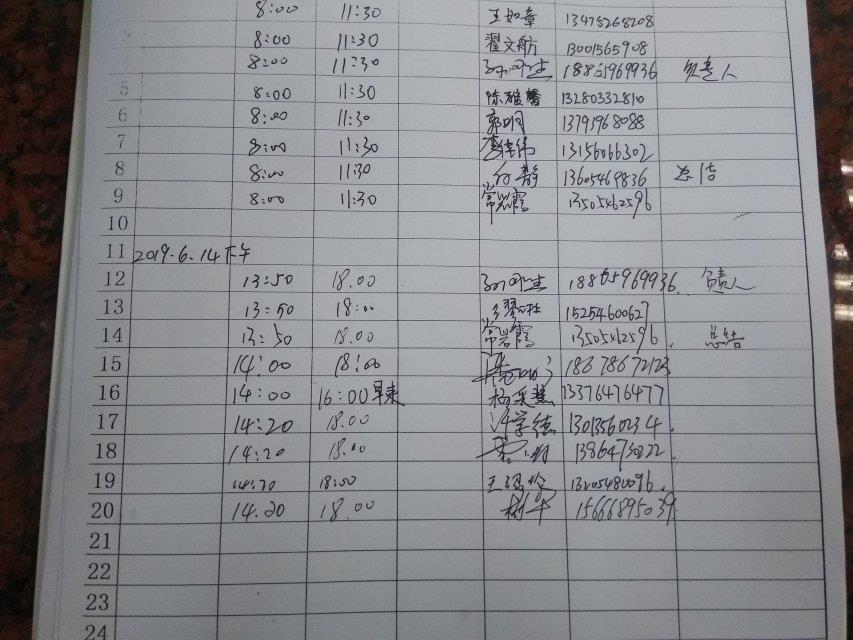 8:00 11:30 王如章 13475268208
8:00 11:30 翟文舫 13001565908
4 8:00 11:30 18861969936 负责人
5 8:00 11:30 陈雅馨 13280332810
6 8:00 11:30 郭明 13791968088
7 8:00 11:30 13156066302
8 8:00 11:30 付静 13605469836 总结
9 8:00 11:30 常岩霞 13505462596
10
11 2019.6.14下午
12 13:50 18.00 18865969936. 负责人
13 13:50 18:00 15254600627
14 13:50 18.00 常岩霞 13505462596. 总结
15 14:00 18:00 18678672123
16 14:00 16:00早来 杨采慧 13376476477
17 14:20 18.00 许学德 13013560234.
18 14:20 18.00 13864730222.
19 14:20 18:00 13205480096.
20 14:20 18.00 15666895039.
21
22
23
24